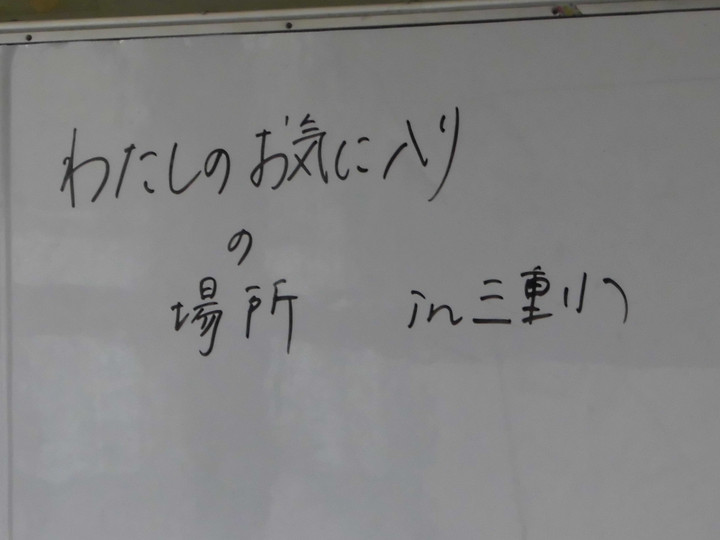 わたしのお気に入り
の
場所 in三重小